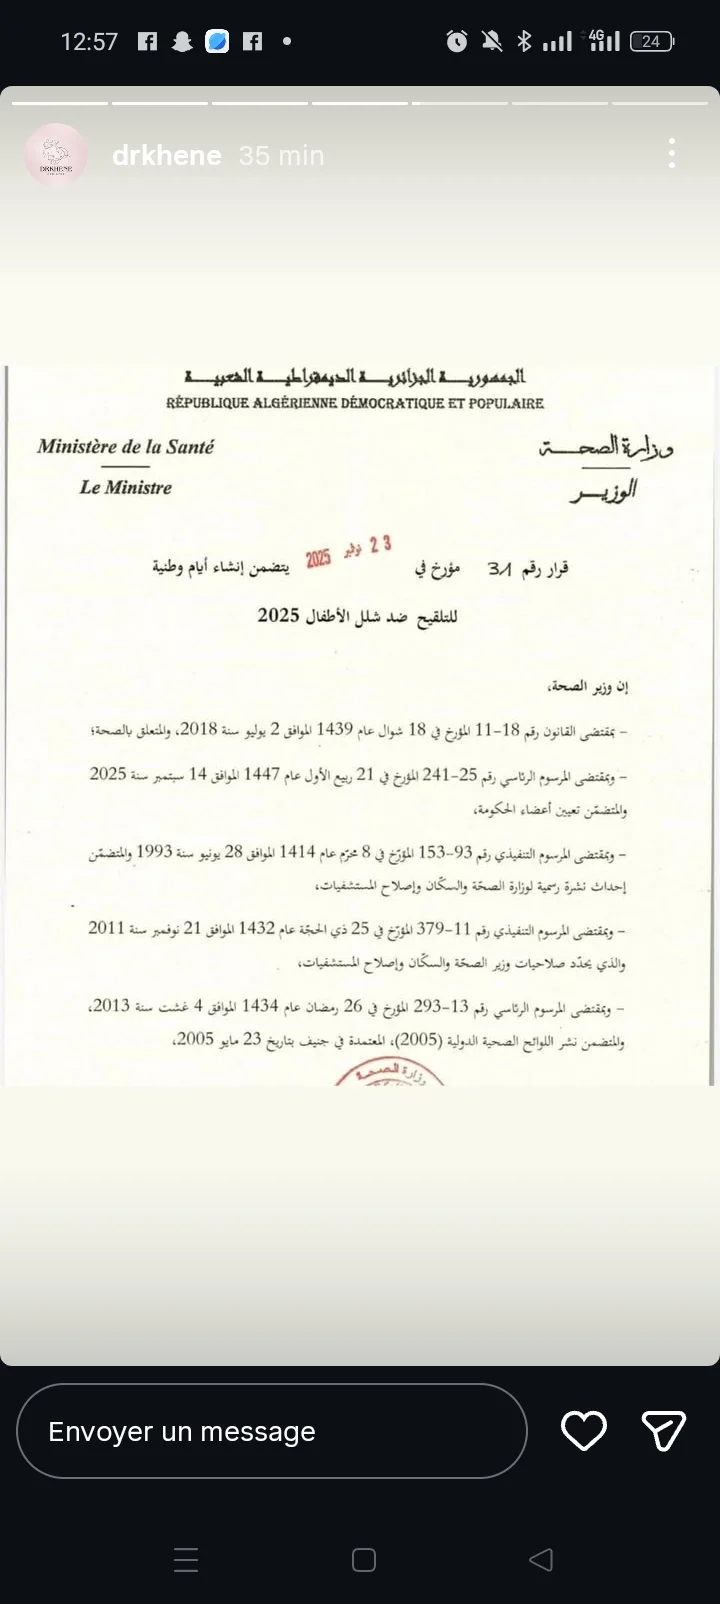 12:57
4G
24
drkhene 35 min
DRKHENE
الجمهورية الجزائرية الديمقراطية الشعبية
RÉPUBLIQUE ALGÉRIENNE DÉMOCRATIQUE ET POPULAIRE
Ministère de la Santé
وزارة الصحة
Le Ministre
الوزير
قرار رقم 31 مؤرخ في 23 نوفمبر 2025 يتضمن إنشاء أيام وطنية
للتلقيح ضد شلل الأطفال 2025
إن وزير الصحة،
– بمقتضى القانون رقم 18–11 المؤرخ في 18 شوال عام 1439 الموافق 2 يوليو سنة 2018، والمتعلق بالصحة؛
– وبمقتضى المرسوم الرئاسي رقم 25–241 المؤرخ في 21 ربيع الأول عام 1447 الموافق 14 سبتمبر سنة 2025
والمتضمّن تعيين أعضاء الحكومة،
– وبمقتضى المرسوم التنفيذي رقم 93–153 المؤرّخ في 8 محرّم عام 1414 الموافق 28 يونيو سنة 1993 والمتضمّن
إحداث نشرة رسمية لوزارة الصحّة والسكّان وإصلاح المستشفيات،
– وبمقتضى المرسوم التنفيذي رقم 11–379 المؤرّخ في 25 ذي الحجّة عام 1432 الموافق 21 نوفمبر سنة 2011
والذي يحدّد صلاحيات وزير الصحّة والسكّان وإصلاح المستشفيات،
– وبمقتضى المرسوم الرئاسي رقم 13–293 المؤرخ في 26 رمضان عام 1434 الموافق 4 غشت سنة 2013،
والمتضمن نشر اللوائح الصحية الدولية (2005)، المعتمدة في جنيف بتاريخ 23 مايو 2005،
وزارة الصحة
Envoyer un message